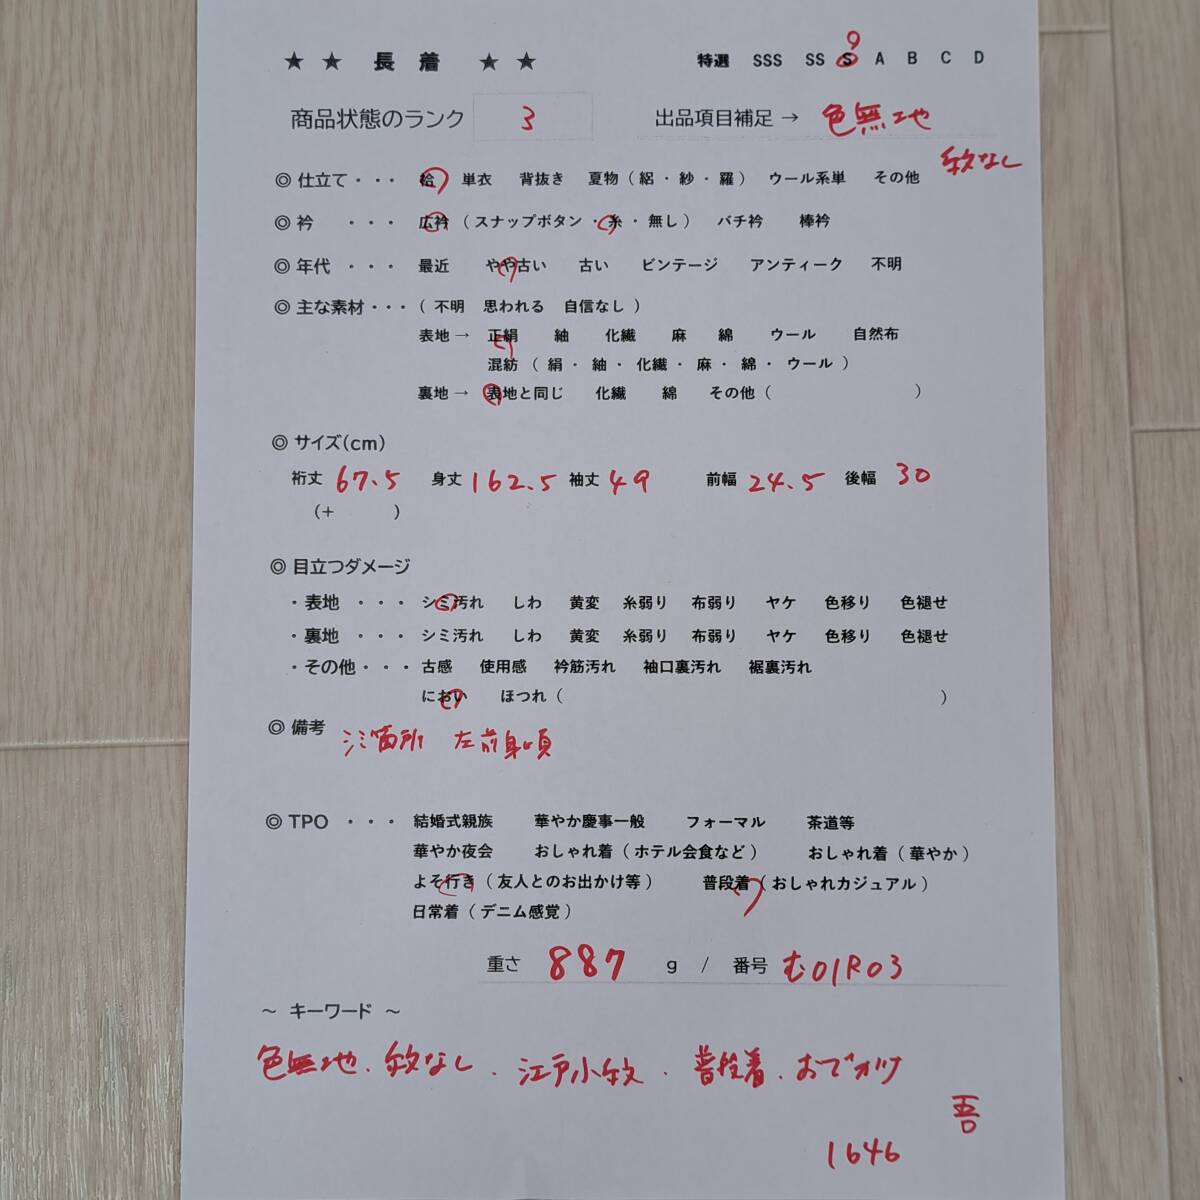 ★ ★ 長 着 ★ ★ 特選 SSS SS S A B C D
商品状態のランク 3 出品項目補足 → 色無地
紋なし
◎ 仕立て・・・ 袷 単衣 背抜き 夏物 ( 絽 ・ 紗 ・ 羅 ) ウール系単 その他
◎ 衿 ・・・ 広衿 ( スナップボタン ・ 糸 ・ 無し ) バチ衿 棒衿
◎ 年代 ・・・ 最近 やや古い 古い ビンテージ アンティーク 不明
◎ 主な素材・・・ ( 不明 思われる 自信なし )
表地 → 正絹 紬 化繊 麻 綿 ウール 自然布
混紡 ( 絹 ・ 紬 ・ 化繊 ・ 麻 ・ 綿 ・ ウール )
裏地 → 表地と同じ 化繊 綿 その他 ( )
◎ サイズ(cm)
裄丈 67.5 身丈 162.5 袖丈 49 前幅 24.5 後幅 30
(+ )
◎ 目立つダメージ
・ 表地 ・・・ シミ汚れ しわ 黄変 糸弱り 布弱り ヤケ 色移り 色褪せ
・ 裏地 ・・・ シミ汚れ しわ 黄変 糸弱り 布弱り ヤケ 色移り 色褪せ
・ その他・・・ 古感 使用感 衿筋汚れ 袖口裏汚れ 裾裏汚れ
におい ほつれ ( )
◎ 備考 シミ箇所 左前身頃
◎ TPO ・・・ 結婚式親族 華やか慶事一般 フォーマル 茶道等
華やか夜会 おしゃれ着 ( ホテル会食など ) おしゃれ着 ( 華やか )
よそ行き ( 友人とのお出かけ等 ) 普段着 ( おしゃれカジュアル )
日常着 ( デニム感覚 )
重さ 887 g / 番号 む01R03
~ キーワード ~
色無地、紋なし、江戸小紋、普段着、おでかけ
吾
1646